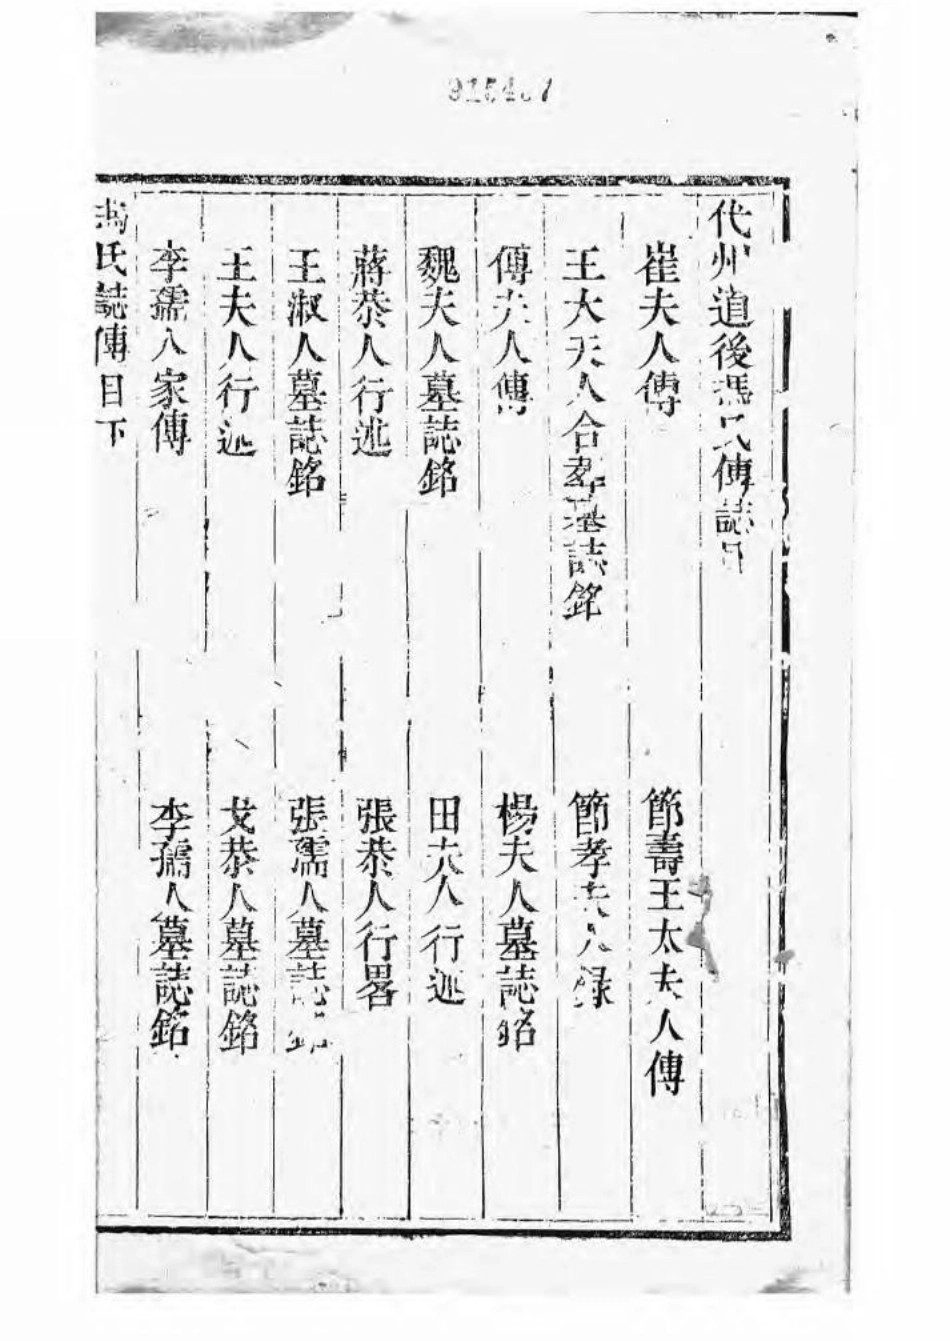 代州道後馮氏傳誌目
崔夫人傳
節壽王太夫人傳
王太夫人合葬墓誌銘
節孝夫人録
傅夫人傳
楊夫人墓誌銘
魏夫人墓誌銘
田夫人行述
蔣恭人行述
張恭人行畧
王淑人墓誌銘
張孺人墓誌銘
王夫人行述
戈恭人墓誌銘
李孺人家傳
李孺人墓誌銘
馮氏誌傳目下